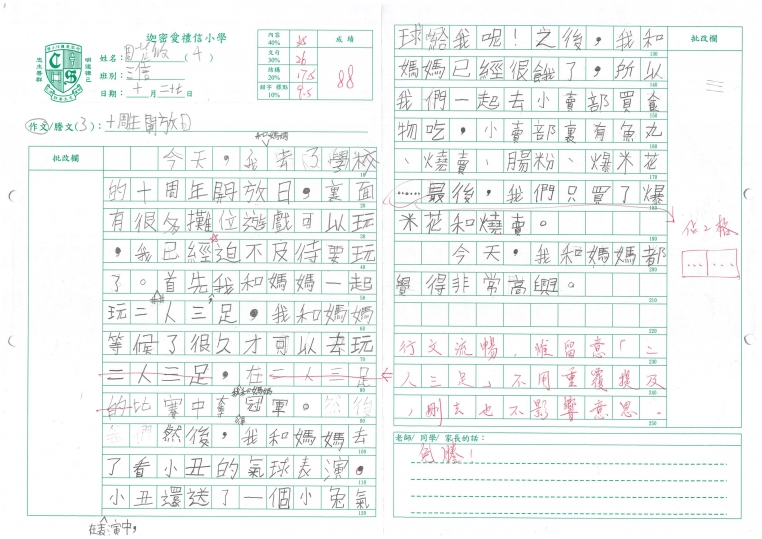 迦密愛禮信小學
內容 40% 35
成績
文句 30% 26
結構 20% 17.5
錯字 標點 10% 9.5
88
姓名： (4)
班別： 三信
日期： 十 月 二十七 日
作文/謄文(3)： 十周年開放日
批改欄
和媽媽
今天，我去了學校
的十周年開放日，裏面
有很多攤位遊戲可以玩
，我已經迫不及待要玩
了。首先我和媽媽一起
玩二人三足，我和媽媽
等候了很久才可以去玩
二人三足，在二人三足
我和媽媽
的比賽中奪冠軍。然後
得
然後，我和媽媽去
了看小丑的氣球表演。
小丑還送了一個小兔氣
在表演中，
批改欄
球給我呢！之後，我和
媽媽已經很餓了，所以
我們一起去小賣部買食
物吃，小賣部裏有魚丸
、燒賣、腸粉、爆米花
……最後，我們只買了爆
米花和燒賣。
佔2格
……
今天，我和媽媽都
覺得非常高興。
行文流暢，惟留意「二
人三足」不用重覆提及
，刪去也不影響意思。
老師/同學/家長的話：
免謄！